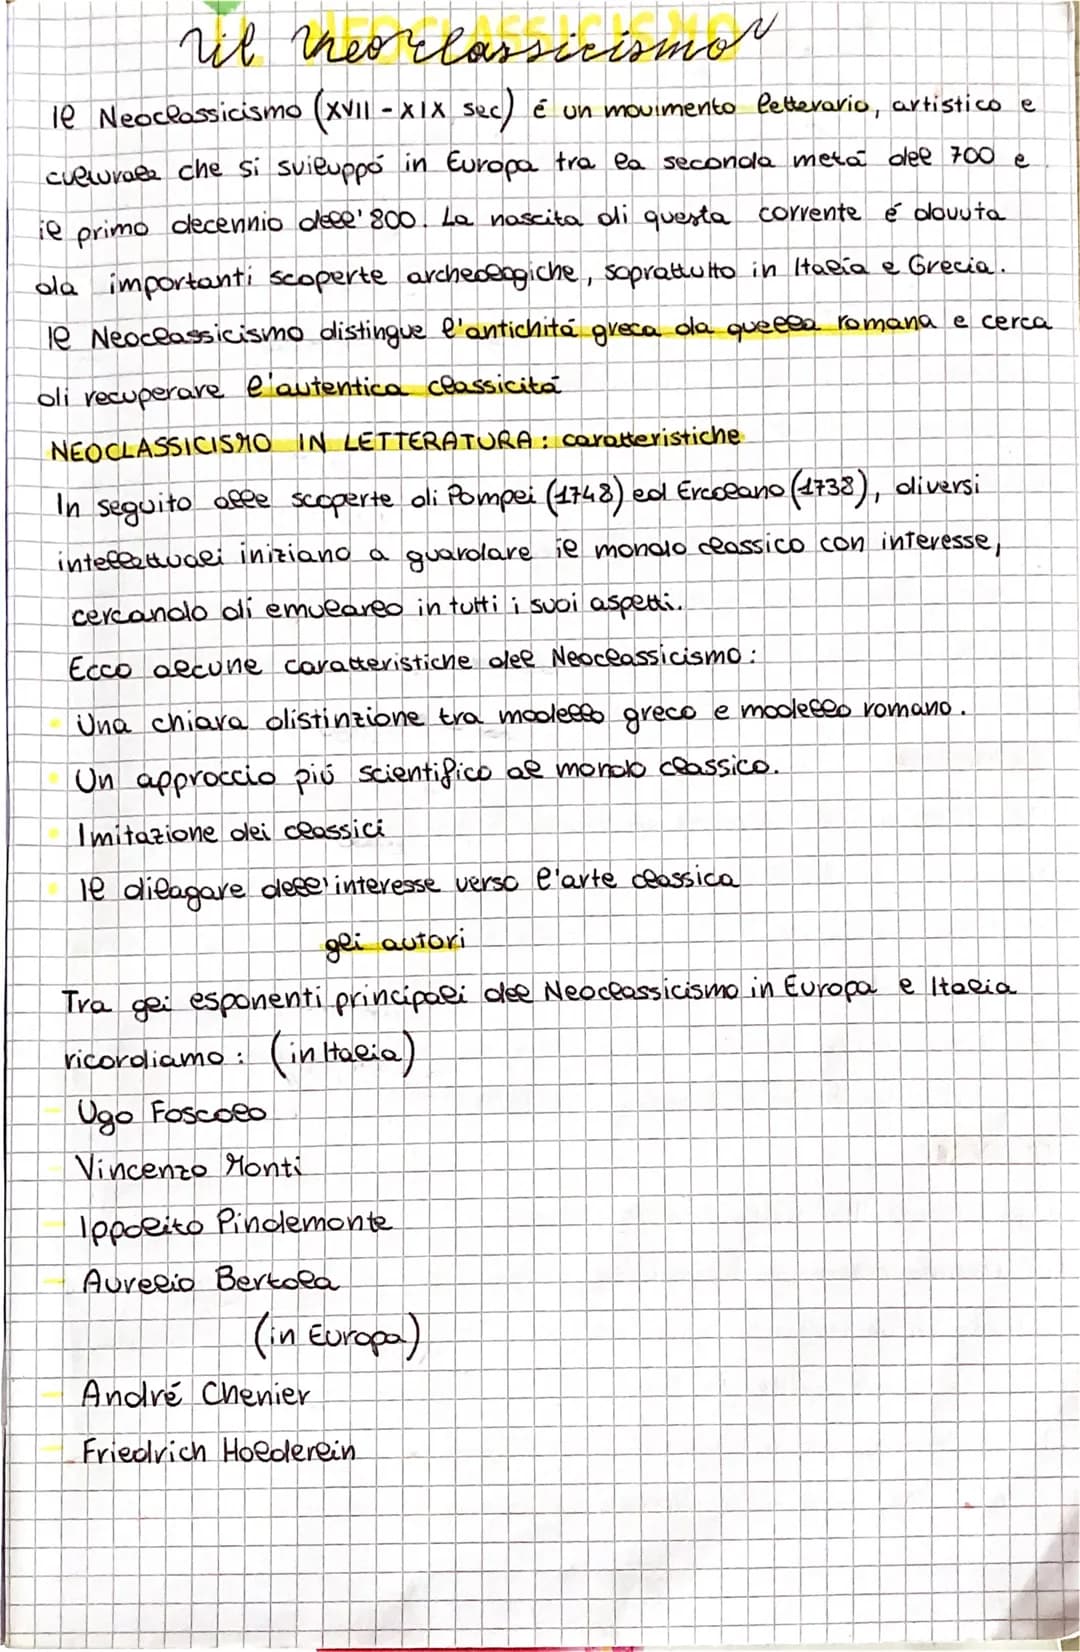 il neoclassicismo
Il Neoclassicismo (XVII - XIX sec) é un movimento letterario, artistico e
culturale che si sviluppó in Europa tra la seconda metá del 700 e
il primo decennio dell'800. La nascita di questa corrente é dovuta
da importanti scoperte archeologiche, soprattutto in Italia e Grecia.
Il Neoclassicismo distingue l'antichitá greca da quella romana e cerca
di recuperare l'autentica classicitá
NEOCLASSICISMO IN LETTERATURA: caratteristiche
In seguito alle scoperte di Pompei (1748) ed Ercolano (1738), diversi
intellettuali iniziano a guardare il mondo classico con interesse,
cercando di emularlo in tutti i suoi aspetti.
Ecco alcune caratteristiche del Neoclassicismo:
Una chiara distinzione tra modello greco e modello romano.
Un approccio piú scientifico al mondo classico.
Imitazione dei classici
Il dilagare dell'interesse verso l'arte classica
gli autori
Tra gli esponenti principali del Neoclassicismo in Europa e Italia
ricordiamo: (in Italia)
- Ugo Foscolo
- Vincenzo Monti
- Ippolito Pindemonte
- Aurelio Bertola
(in Europa)
- André Chenier
- Friedrich Hoelderlin